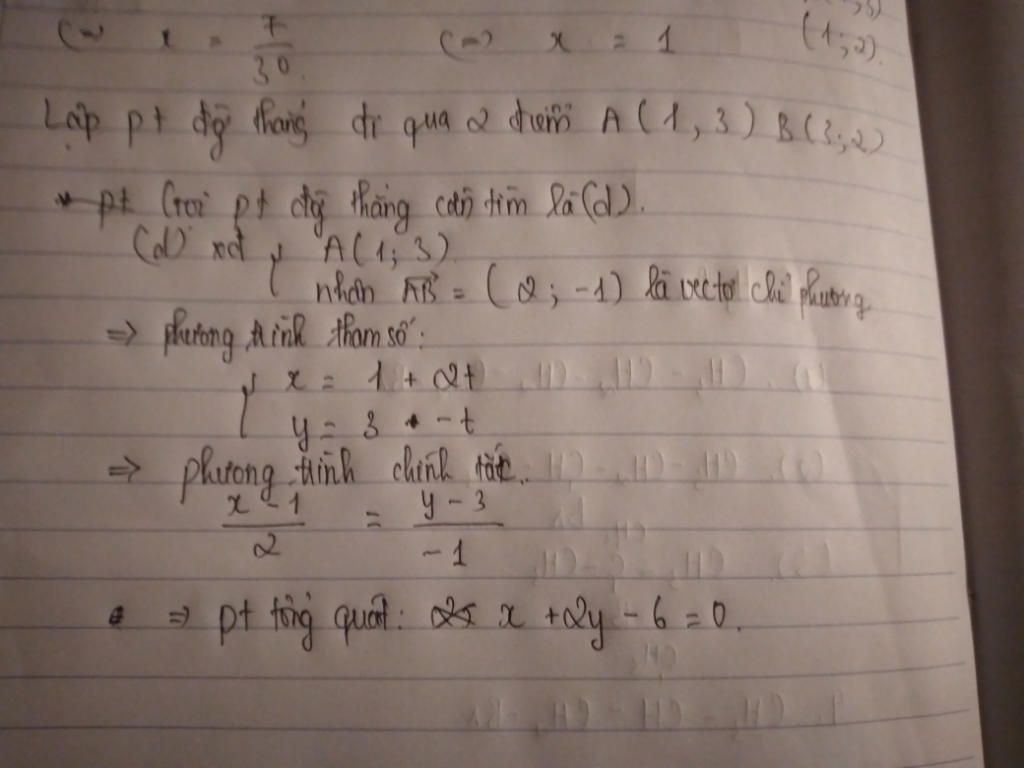 (=> x = 7/30 (=> x = 1 (1;2).
Lập pt đg̃ thẳng đi qua 2 điểm A(1,3) B(3;2)
Gọi pt đg̃ thẳng cần tìm là (d).
(d) xđ { A(1;3)
nhận AB = (2; -1) là vectơ chỉ phương
=> phương trình tham số:
{ x = 1 + 2t
y = 3 - t
=> phương trình chính tắc.
x - 1 / 2 = y - 3 / -1
=> pt tổng quát: x + 2y - 6 = 0.